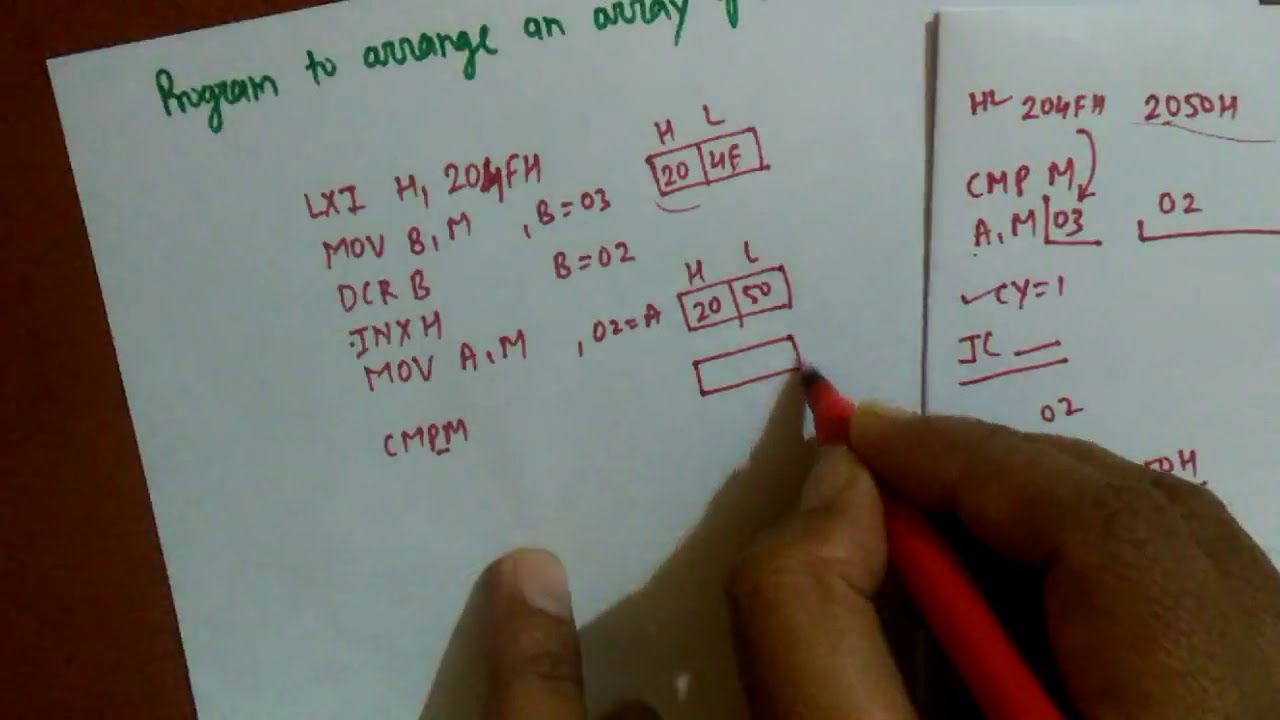 Program to arrange an array
H L
20 4F
LXI H, 204FH
MOV B, M , B=03
DCR B B=02
H L
20 50
INX H
MOV A, M , 02=A
CMP M
204FH 2050H
CMP M
A, M 03 02
CY=1
JC
02
50H